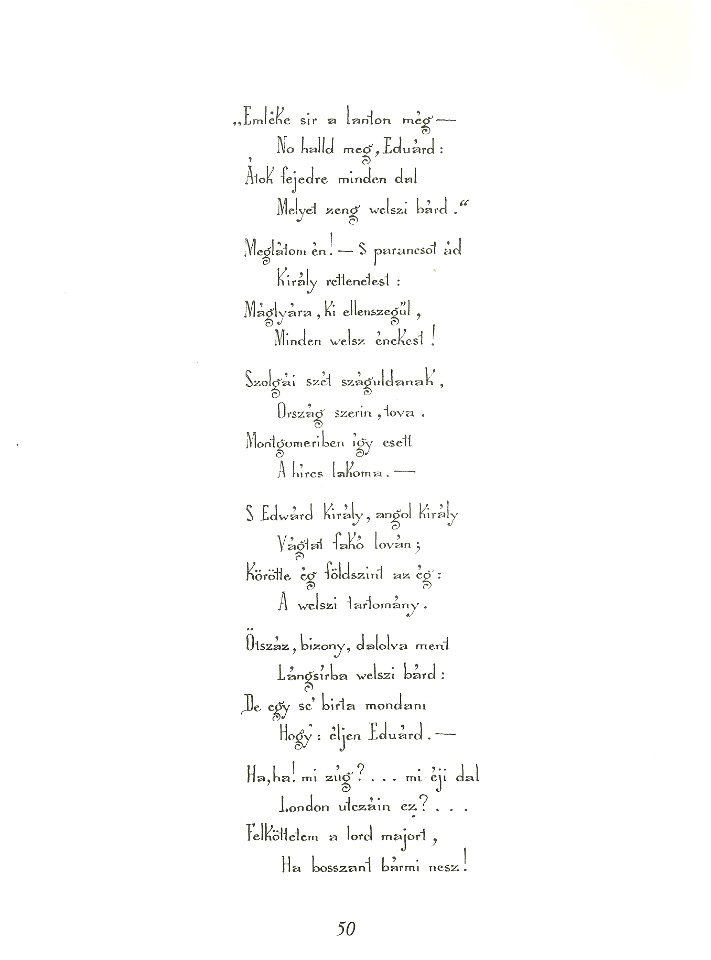 „Emléke sir a lanton még —
No halld meg, Eduárd :
Átok fejedre minden dal
Melyet zeng welszi bárd .“
Meglátom én! — S parancsot ád
Király rettenetest :
Máglyára , ki ellenszegűl ,
Minden welsz énekest !
Szolgái szét száguldanak ,
Ország szerin , tova .
Montgomeriben így esett
A híres lakoma . —
S Edwárd király, angol király
Vágtat fakó lován ;
Körötte ég földszint az ég :
A welszi tartomány .
Ötszáz , bizony, dalolva ment
Lángsírba welszi bárd :
De egy se’ birta mondani
Hogy : éljen Eduárd . —
Ha, ha! mi zúg ? . . . mi éji dal
London utczáin ez ? . . .
Felköttetem a lord majort ,
Ha bosszant bármi nesz !
50